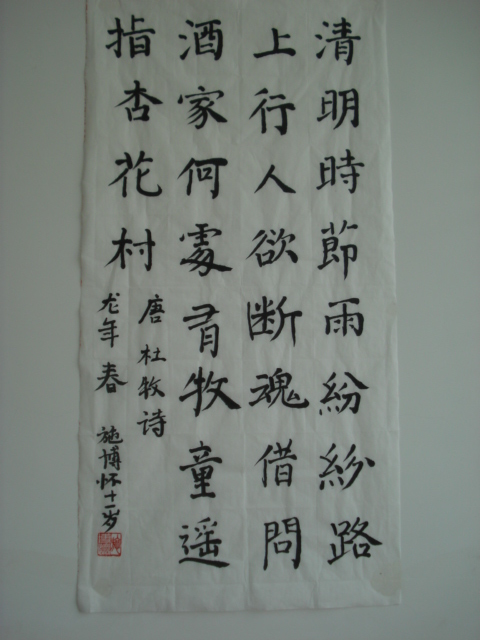 清明時節雨紛紛路
上行人欲断魂借問
酒家何處有牧童遥
指杏花村
唐 杜牧诗
龙年 春 施博怀十一岁